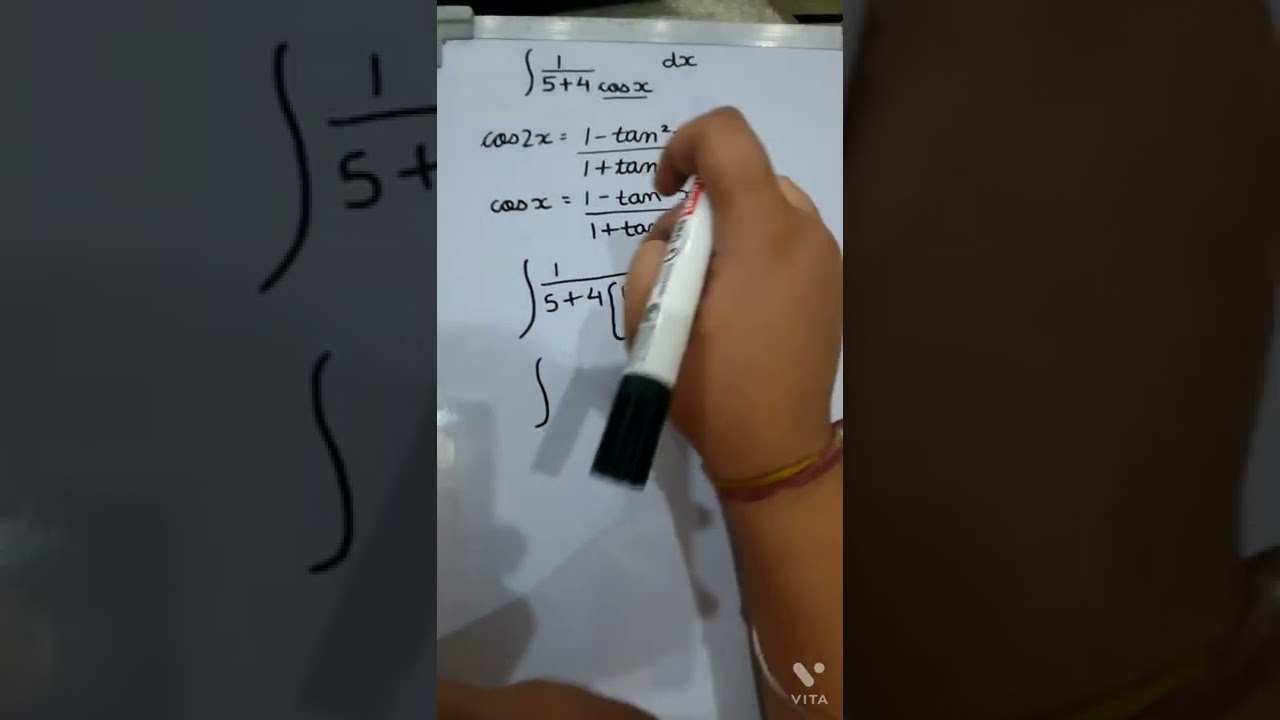 ∫ 1/(5+4 cos x) dx
cos2x = 1 - tan²
1 + tan
cos x = 1 - tan
1 + ta
∫ 1/(5+4{
∫
VITA